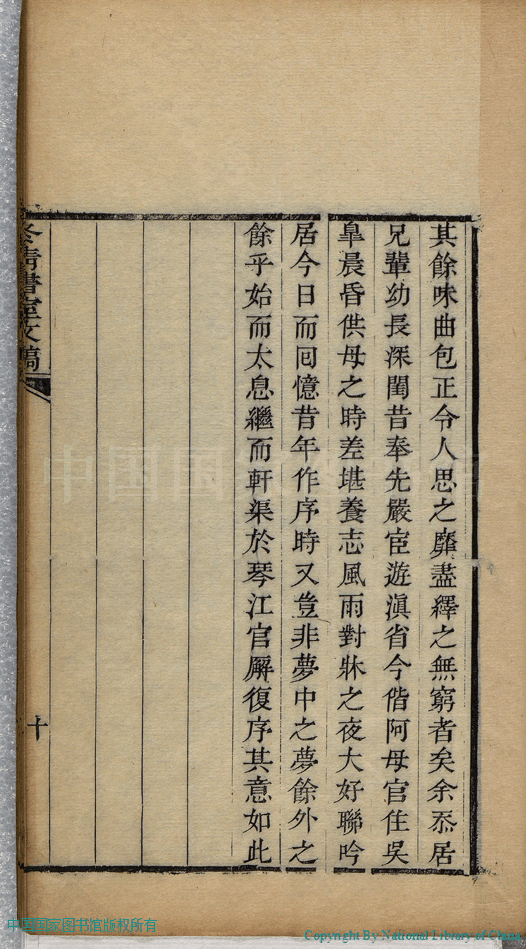 其餘味曲包正令人思之靡盡繹之無窮者矣余忝居
兄輩幼長深閨昔奉先嚴宦遊滇省今偕阿母官住吳
臯晨昏供母之時差堪養志風雨對牀之夜大好聯吟
居今日而囘憶昔年作序時又豈非夢中之夢餘外之
餘乎始而太息繼而軒渠於琴江官廨復序其意如此
書室文稿
十
中国国家图书馆版权所有
Copyright By National Library of China